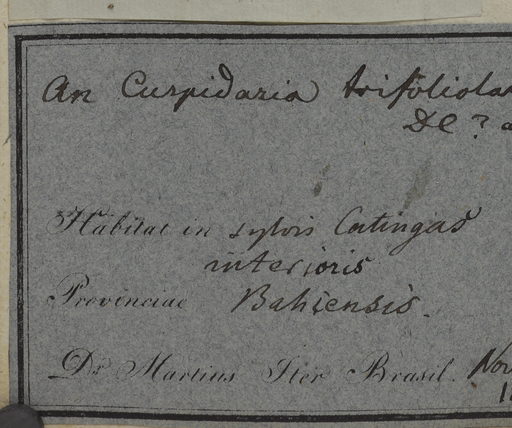 An Cuspidaria trifoliolat
DC ? a
Habitat in sylvis Catingas
interioris
Provinciae Bahiensis.
Dr Martius Iter Brasil. Nov
18